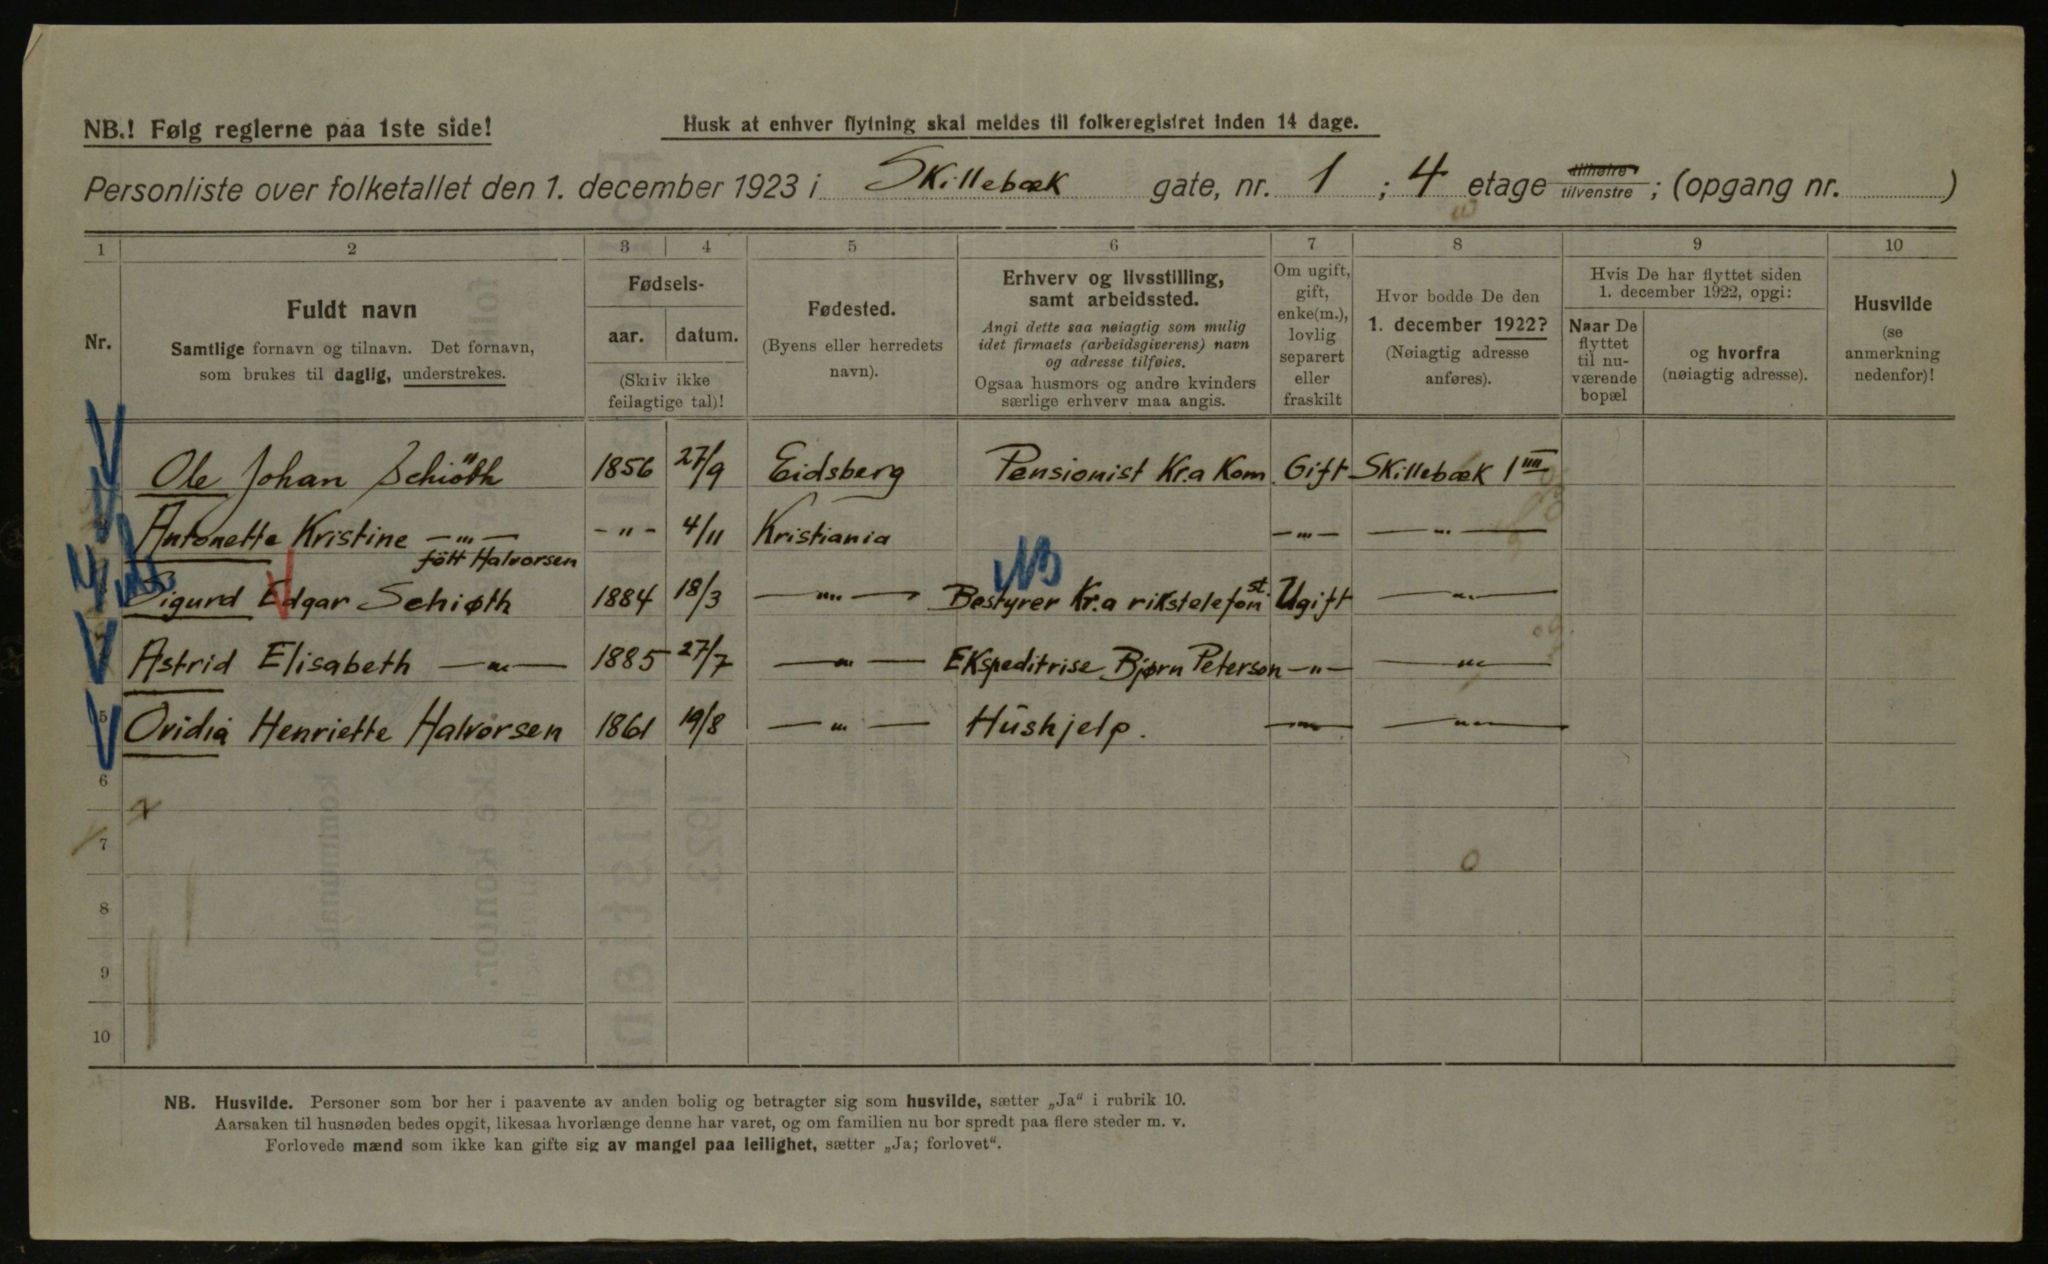 NB.! Følg reglerne paa 1ste side!
Husk at enhver flytning skal meldes til folkeregistret inden 14 dage.
Personliste over folketallet den 1. december 1923 i Skillebæk gate, nr. 1 ; 4 etage tilhøire tilvenstre ; (opgang nr. )
1 2 3 4 5 6 7 8 9 10
Nr.
Fuldt navn
Samtlige fornavn og tilnavn. Det fornavn,
som brukes til daglig, understrekes.
Fødsels-
aar. datum.
(Skriv ikke
feilagtige tal)!
Fødested.
(Byens eller herredets
navn).
Erhverv og livsstilling,
samt arbeidssted.
Angi dette saa nøiagtig som mulig
idet firmaets (arbeidsgiverens) navn
og adresse tilføies.
Ogsaa husmors og andre kvinders
særlige erhverv maa angis.
Om ugift,
gift,
enke(m.),
lovlig
separert
eller
fraskilt
Hvor bodde De den
1. december 1922?
(Nøiagtig adresse
anføres).
Hvis De har flyttet siden
1. december 1922, opgi:
Naar De
flyttet
til nu-
værende
bopæl
og hvorfra
(nøiagtig adresse).
Husvilde
(se
anmerkning
nedenfor)!
Ole Johan Schiöth 1856 27/9 Eidsberg Pensionist Kr.a Kom. Gift Skillebæk 1 IIII
Antonette Kristine —"— -"- 4/11 Kristiania —"— —"—
fött Halvorsen
NB
Sigurd Edgar Schiøth 1884 18/3 —"— Bestyrer Kr.a rikstelefonst. Ugift —"—
Astrid Elisabeth —"— 1885 27/7 —"— Ekspeditrise Bjørn Peterson —"— —"—
5 Ovidia Henriette Halvorsen 1861 19/8 —"— Hushjelp. —"— —"—
6
7
8
9
10
NB. Husvilde. Personer som bor her i paavente av anden bolig og betragter sig som husvilde, sætter „Ja“ i rubrik 10.
Aarsaken til husnøden bedes opgit, likesaa hvorlænge denne har varet, og om familien nu bor spredt paa flere steder m. v.
Forlovede mænd som ikke kan gifte sig av mangel paa leilighet, sætter „Ja; forlovet“.